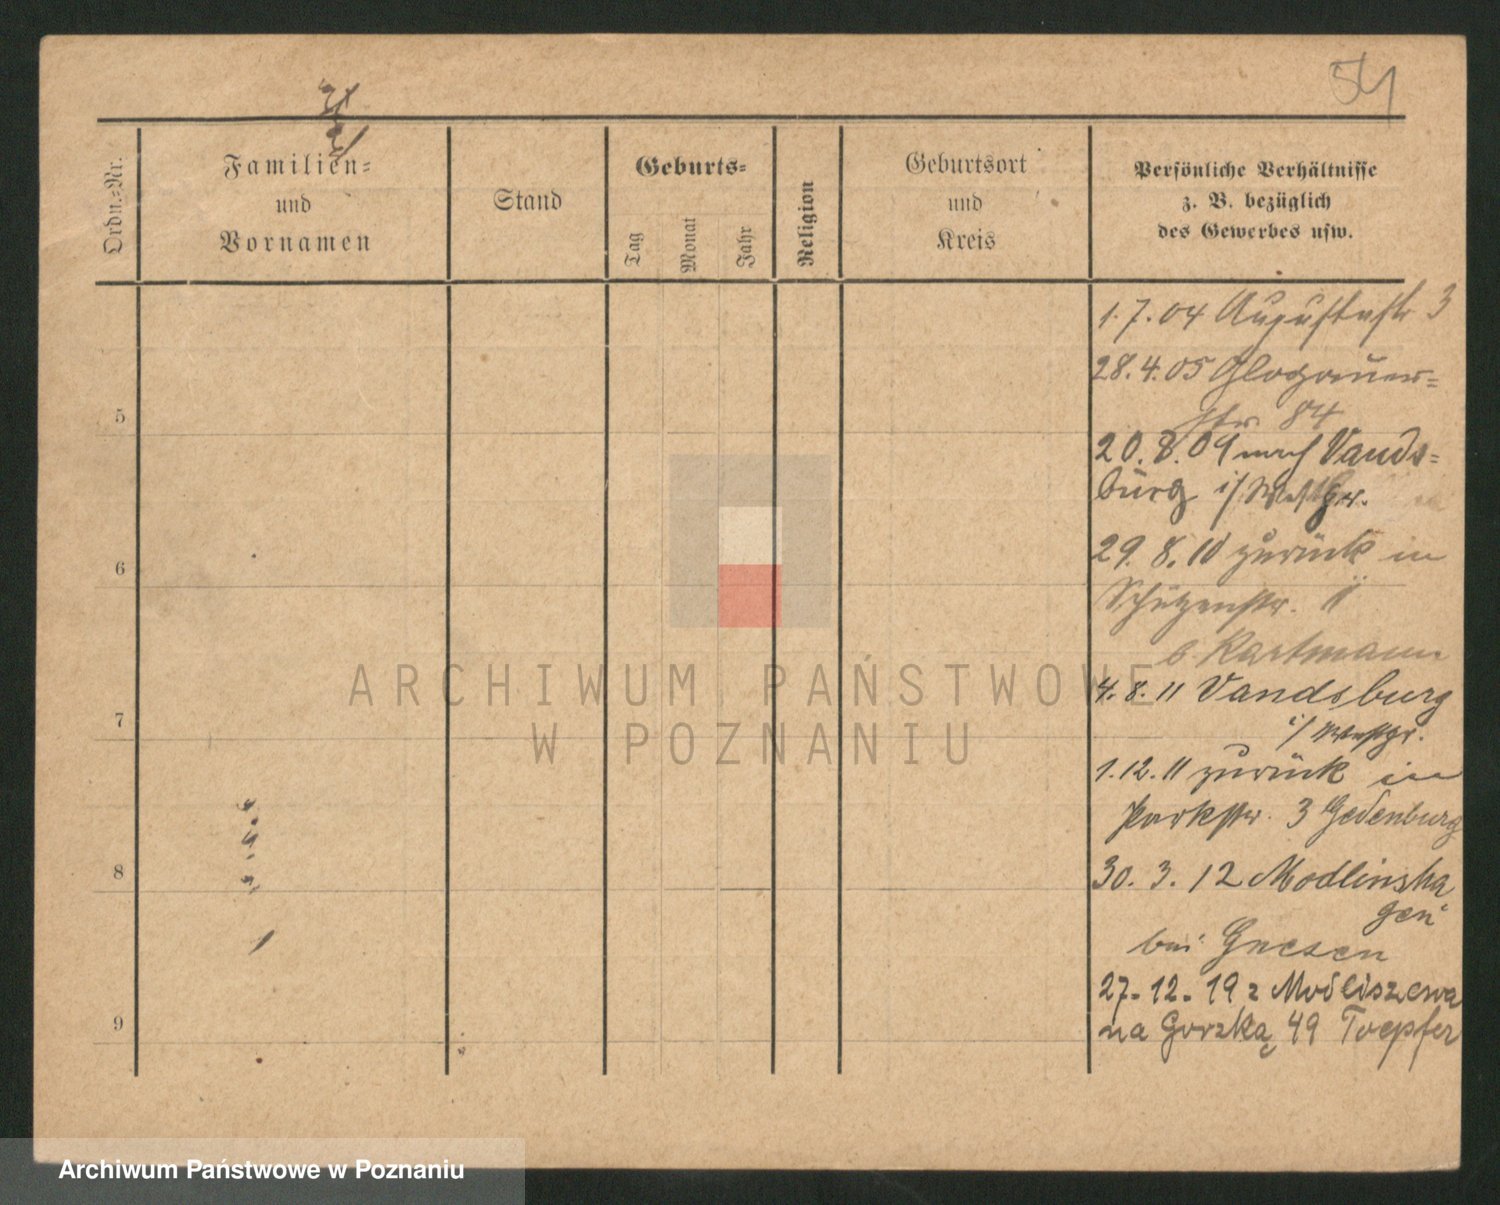 54
Ordn.-Nr.
Familien-
und
Vornamen
Stand
Geburts-
Tag
Monat
Jahr
Religion
Geburtsort
und
Kreis
Persönliche Verhältnisse
z. B. bezüglich
des Gewerbes usw.
1.7.04 Augustastr 3
28.4.05 Glogauer-
str 84
5
20.8.09 nach Vands-
burg i/Westpr.
29.8.10 zurück in
6
Schützenstr. 11
b. Kartmann
4.8.11 Vandsburg
7
i/Westpr.
1.12.11 zurück in
Parkstr. 3 Gedenburg
8
30.3.12 Modlinsha
gen
bei Gnesen
27.12.19 z Modliszewa
9
na Gorzką 49 Toepfer
ARCHIWUM PAŃSTWOWE
W POZNANIU
Archiwum Państwowe w Poznaniu